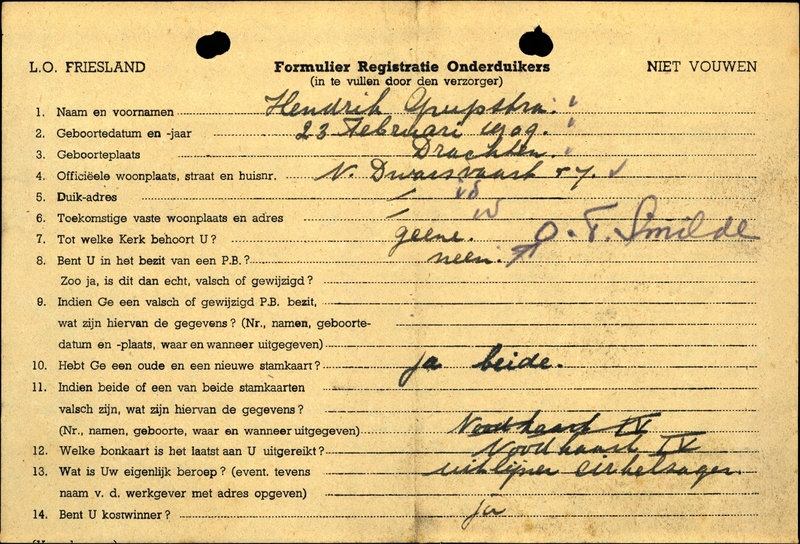 L.O. FRIESLAND Formulier Registratie Onderduikers NIET VOUWEN
(in te vullen door den verzorger)
1. Naam en voornamen Hendrik
2. Geboortedatum en -jaar 23 Februari 1909.
3. Geboorteplaats Drachten.
4. Officiëele woonplaats, straat en huisnr. N. Dwarsvaart 87
5. Duik-adres
6. Toekomstige vaste woonplaats en adres
7. Tot welke Kerk behoort U? geene. O. T. Smilde
8. Bent U in het bezit van een P.B.? neen.
Zoo ja, is dit dan echt, valsch of gewijzigd?
9. Indien Ge een valsch of gewijzigd P.B. bezit,
wat zijn hiervan de gegevens? (Nr., namen, geboorte-
datum en -plaats, waar en wanneer uitgegeven)
10. Hebt Ge een oude en een nieuwe stamkaart? ja beide.
11. Indien beide of een van beide stamkaarten
valsch zijn, wat zijn hiervan de gegevens?
(Nr., namen, geboorte, waar en wanneer uitgegeven) Noodkaart IV
12. Welke bonkaart is het laatst aan U uitgereikt? Noodkaart IV
13. Wat is Uw eigenlijk beroep? (event. tevens cirkelzager.
naam v. d. werkgever met adres opgeven)
14. Bent U kostwinner? ja